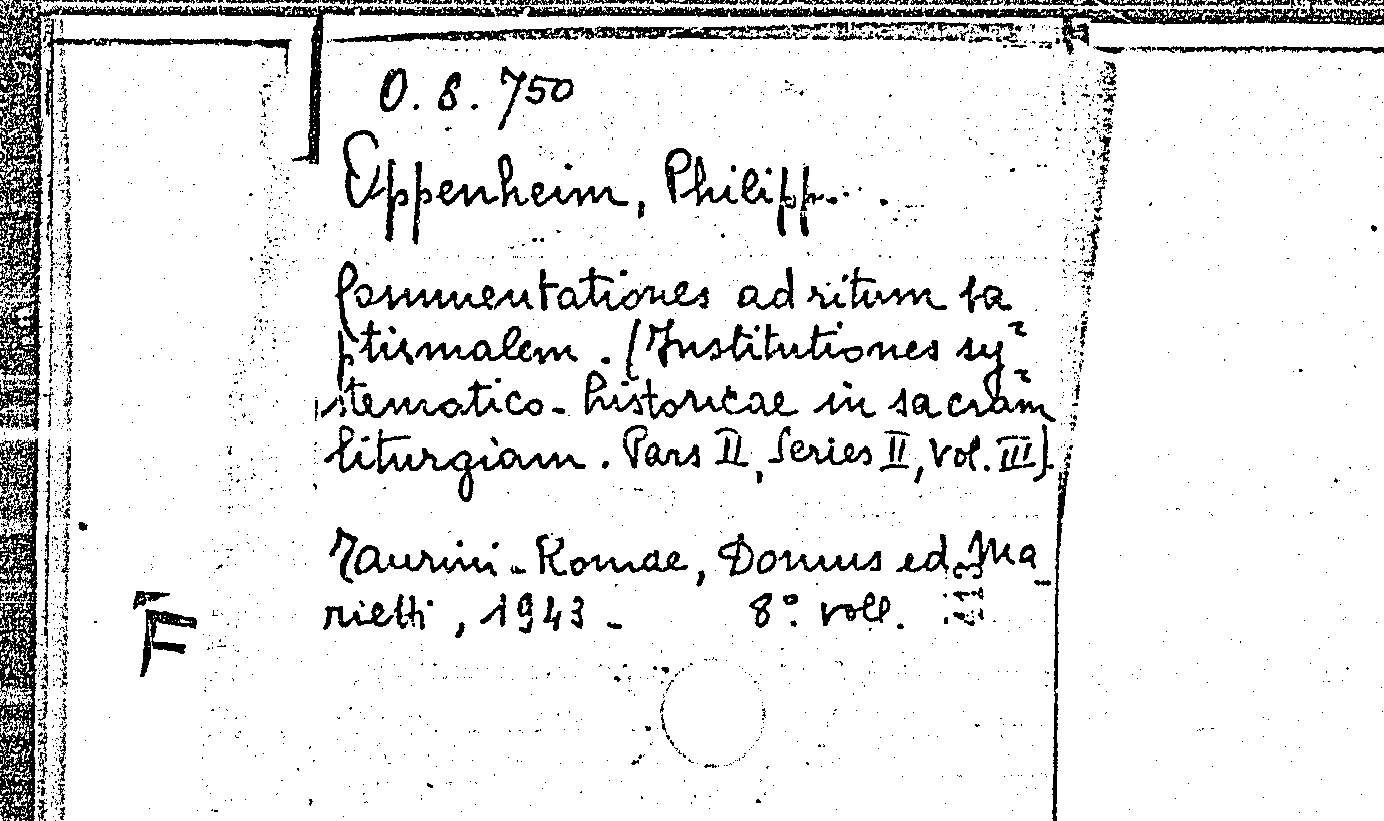 O. 8. 750
Eppenheim, Philipp...
Commentationes ad ritum ba
ptismalem. (Institutiones sy=
stematico-historicae in sacram
liturgiam. Pars II, Series II, Vol. III).
Taurini-Romae, Domus ed. Ma-
rietti, 1943 - 8º. voll.
F